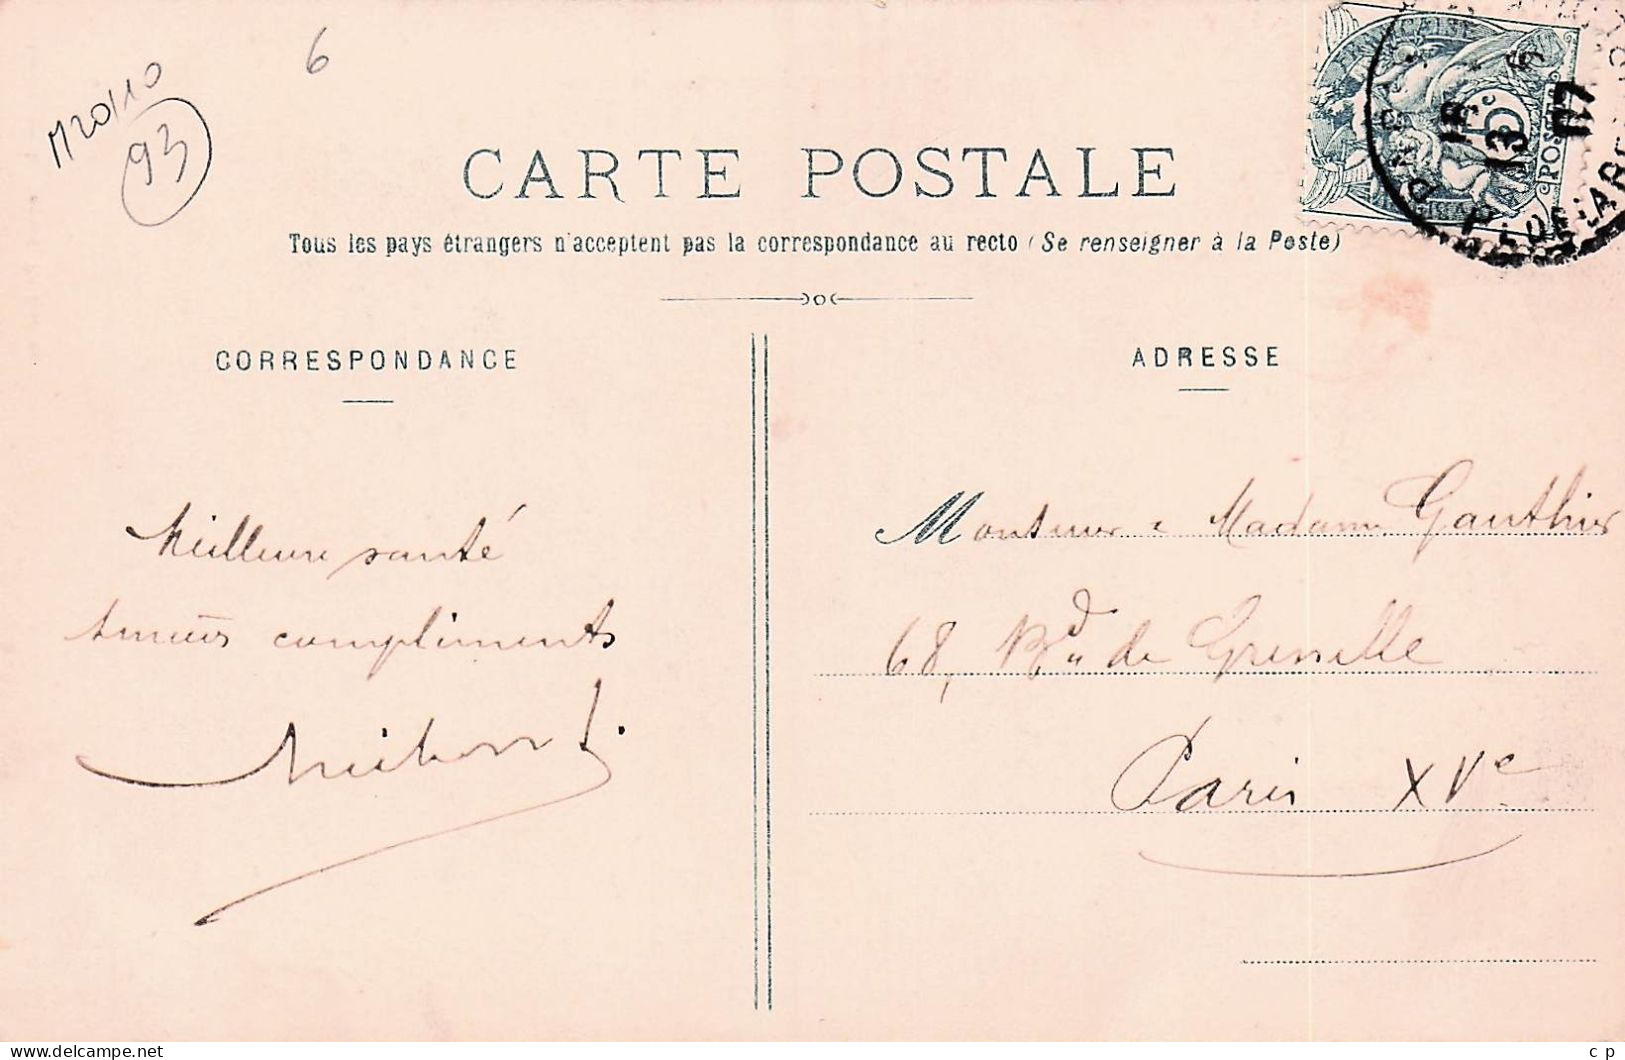 M20/10
93
6
CARTE POSTALE
Tous les pays étrangers n'acceptent pas la correspondance au recto (Se renseigner à la Poste)
CORRESPONDANCE
Meilleure santé
compliments
ADRESSE
Monsieur & Madame Gauthier
68, Bd de Grenelle
Paris XVe
5c
POSTES
13
07
delcampe.net
c p